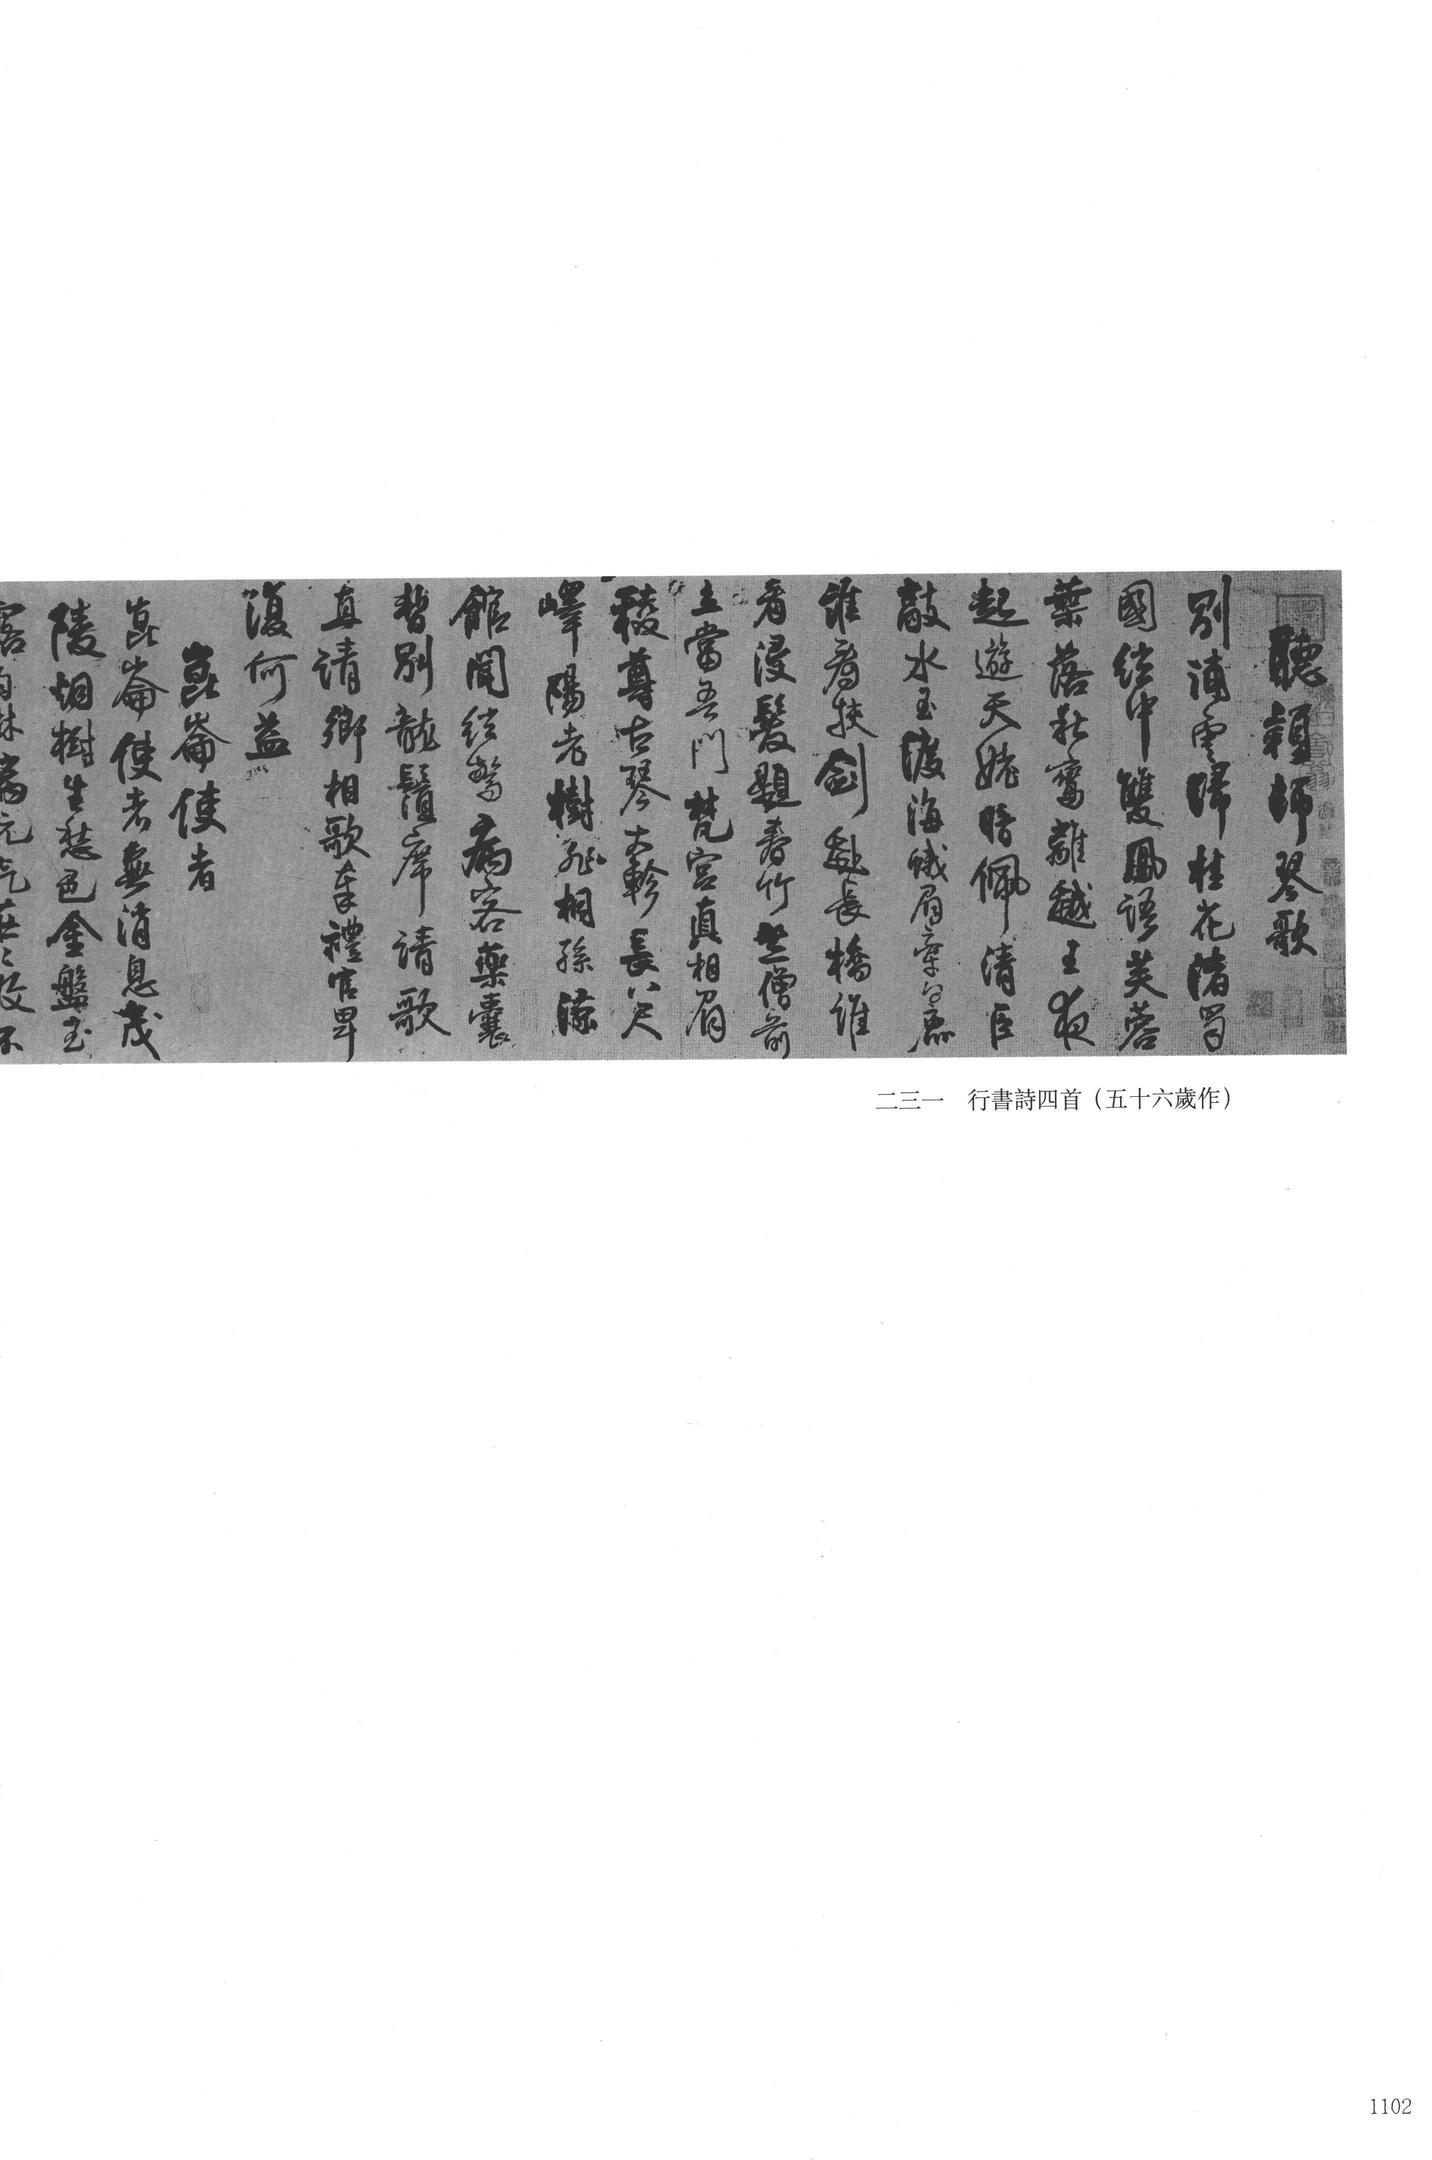 聽穎師琴歌
別浦雲歸桂花渚蜀
國絃中雙鳳語芙蓉
葉落秋鸞離越王夜
起遊天姥暗佩清臣
敲水玉渡海蛾眉牽白鹿
誰看挾劍赴長橋誰
看浸髮題春竹竺僧前
立當吾門梵宮真相眉
稜尊古琴大軫長八尺
嶧陽老樹非桐孫涼
館聞絃驚病客藥囊
暫別龍鬚席請歌
直請卿相歌奉禮官卑
復何益
崑崙使者
崑崙使者無消息茂
陵烟樹生愁色金盤玉
二三一　行書詩四首（五十六歲作）
1102